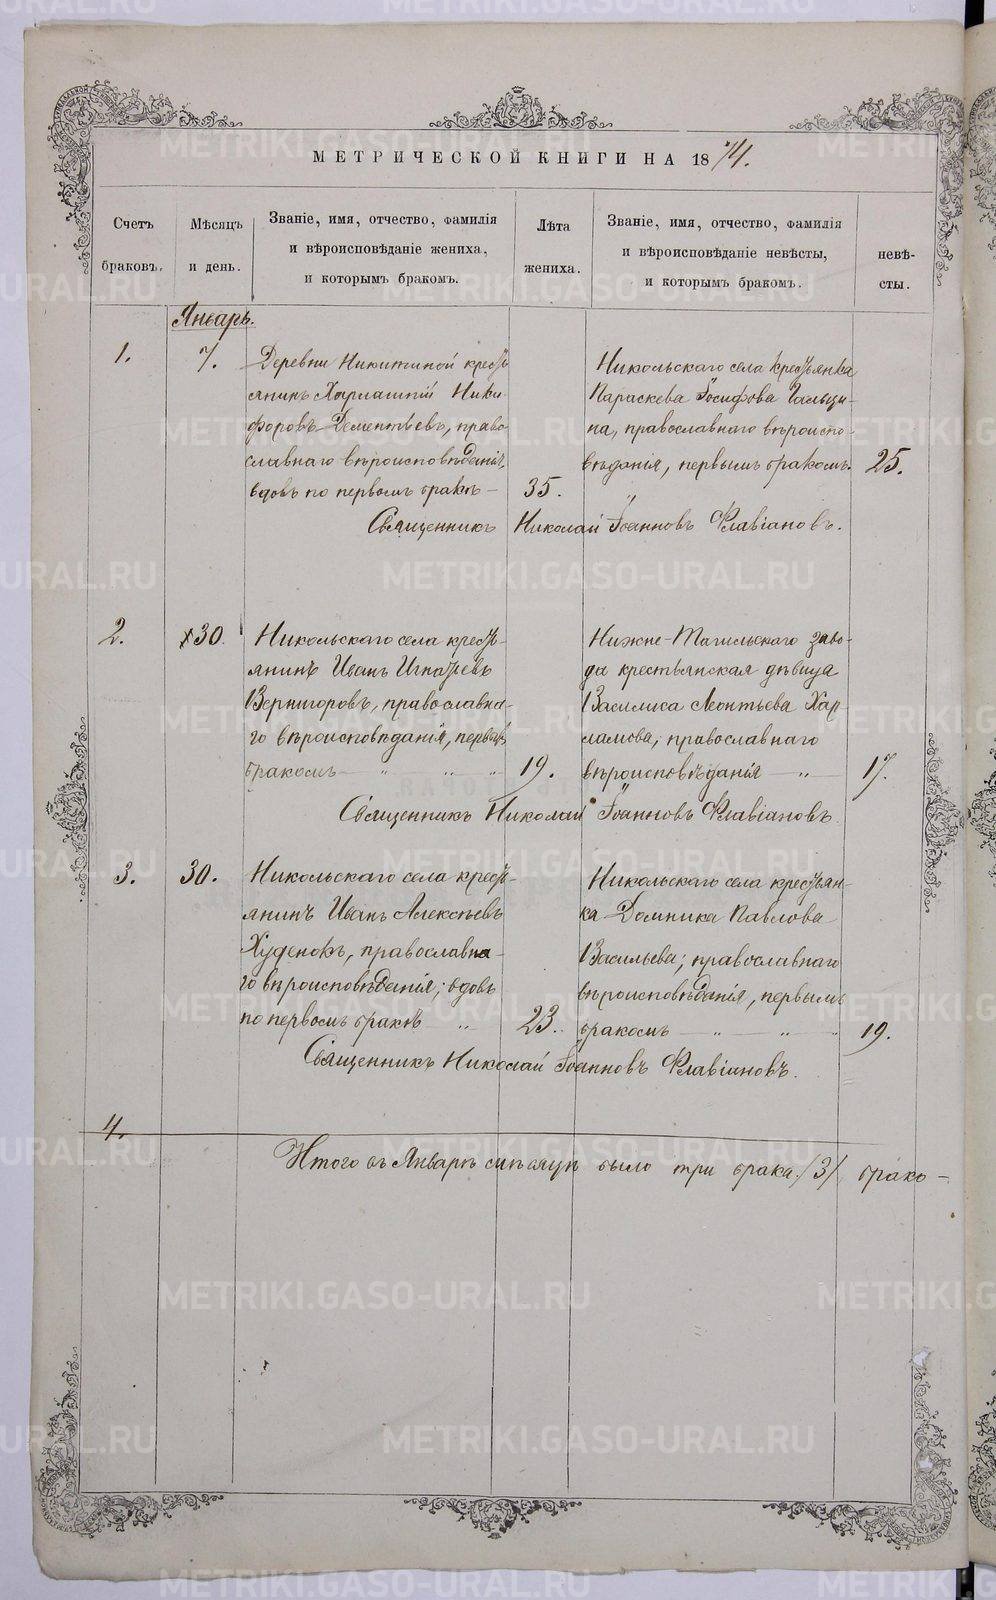 МЕТРИЧЕСКОЙ КНИГИ НА 1874.
Счетъ браковъ.
Мѣсяцъ и день.
Званіе, имя, отчество, фамилія
и вѣроисповѣданіе жениха,
и которымъ бракомъ.
Лѣта жениха.
Званіе, имя, отчество, фамилія
и вѣроисповѣданіе невѣсты,
и которымъ бракомъ.
невѣ-
сты.
Январь.
1.
7.
Деревни Никитиной кресть
янинъ Харлампій Ники
форовъ Дементьевъ, право
славнаго вѣроисповѣданія,
вдовъ по первомъ бракѣ —
35.
Никольскаго села крестьянка
Параскева Іосифова Гальци-
на, православнаго вѣроиспо-
вѣданія, первымъ бракомъ.
25.
Священникъ Николай Іоанновъ Флавіановъ.
2.
30.
Никольскаго села кресть-
янинъ Иванъ Игнатьевъ
Вернигоровъ, православна-
го вѣроисповѣданія, первымъ
бракомъ — " — " — "
19.
Нижне-Тагильскаго заво-
да крестьянская дѣвица
Василиса Леонтьева Хар-
ламова, православнаго
вѣроисповѣданія — " —
17.
Священникъ Николай Іоанновъ Флавіановъ.
3.
30.
Никольскаго села кресть-
янинъ Иванъ Алексѣевъ
Худенокъ, православна-
го вѣроисповѣданія; вдовъ
по первомъ бракѣ — "
23.
Никольскаго села крестьян-
ка Домника Павлова
Васильева; православнаго
вѣроисповѣданія, первымъ
бракомъ — " — " — "
19.
Священникъ Николай Іоанновъ Флавіановъ.
4.
Итого въ Январѣ мѣсяцѣ было три брака /3/ брако-
METRIKI.GASO-URAL.RU